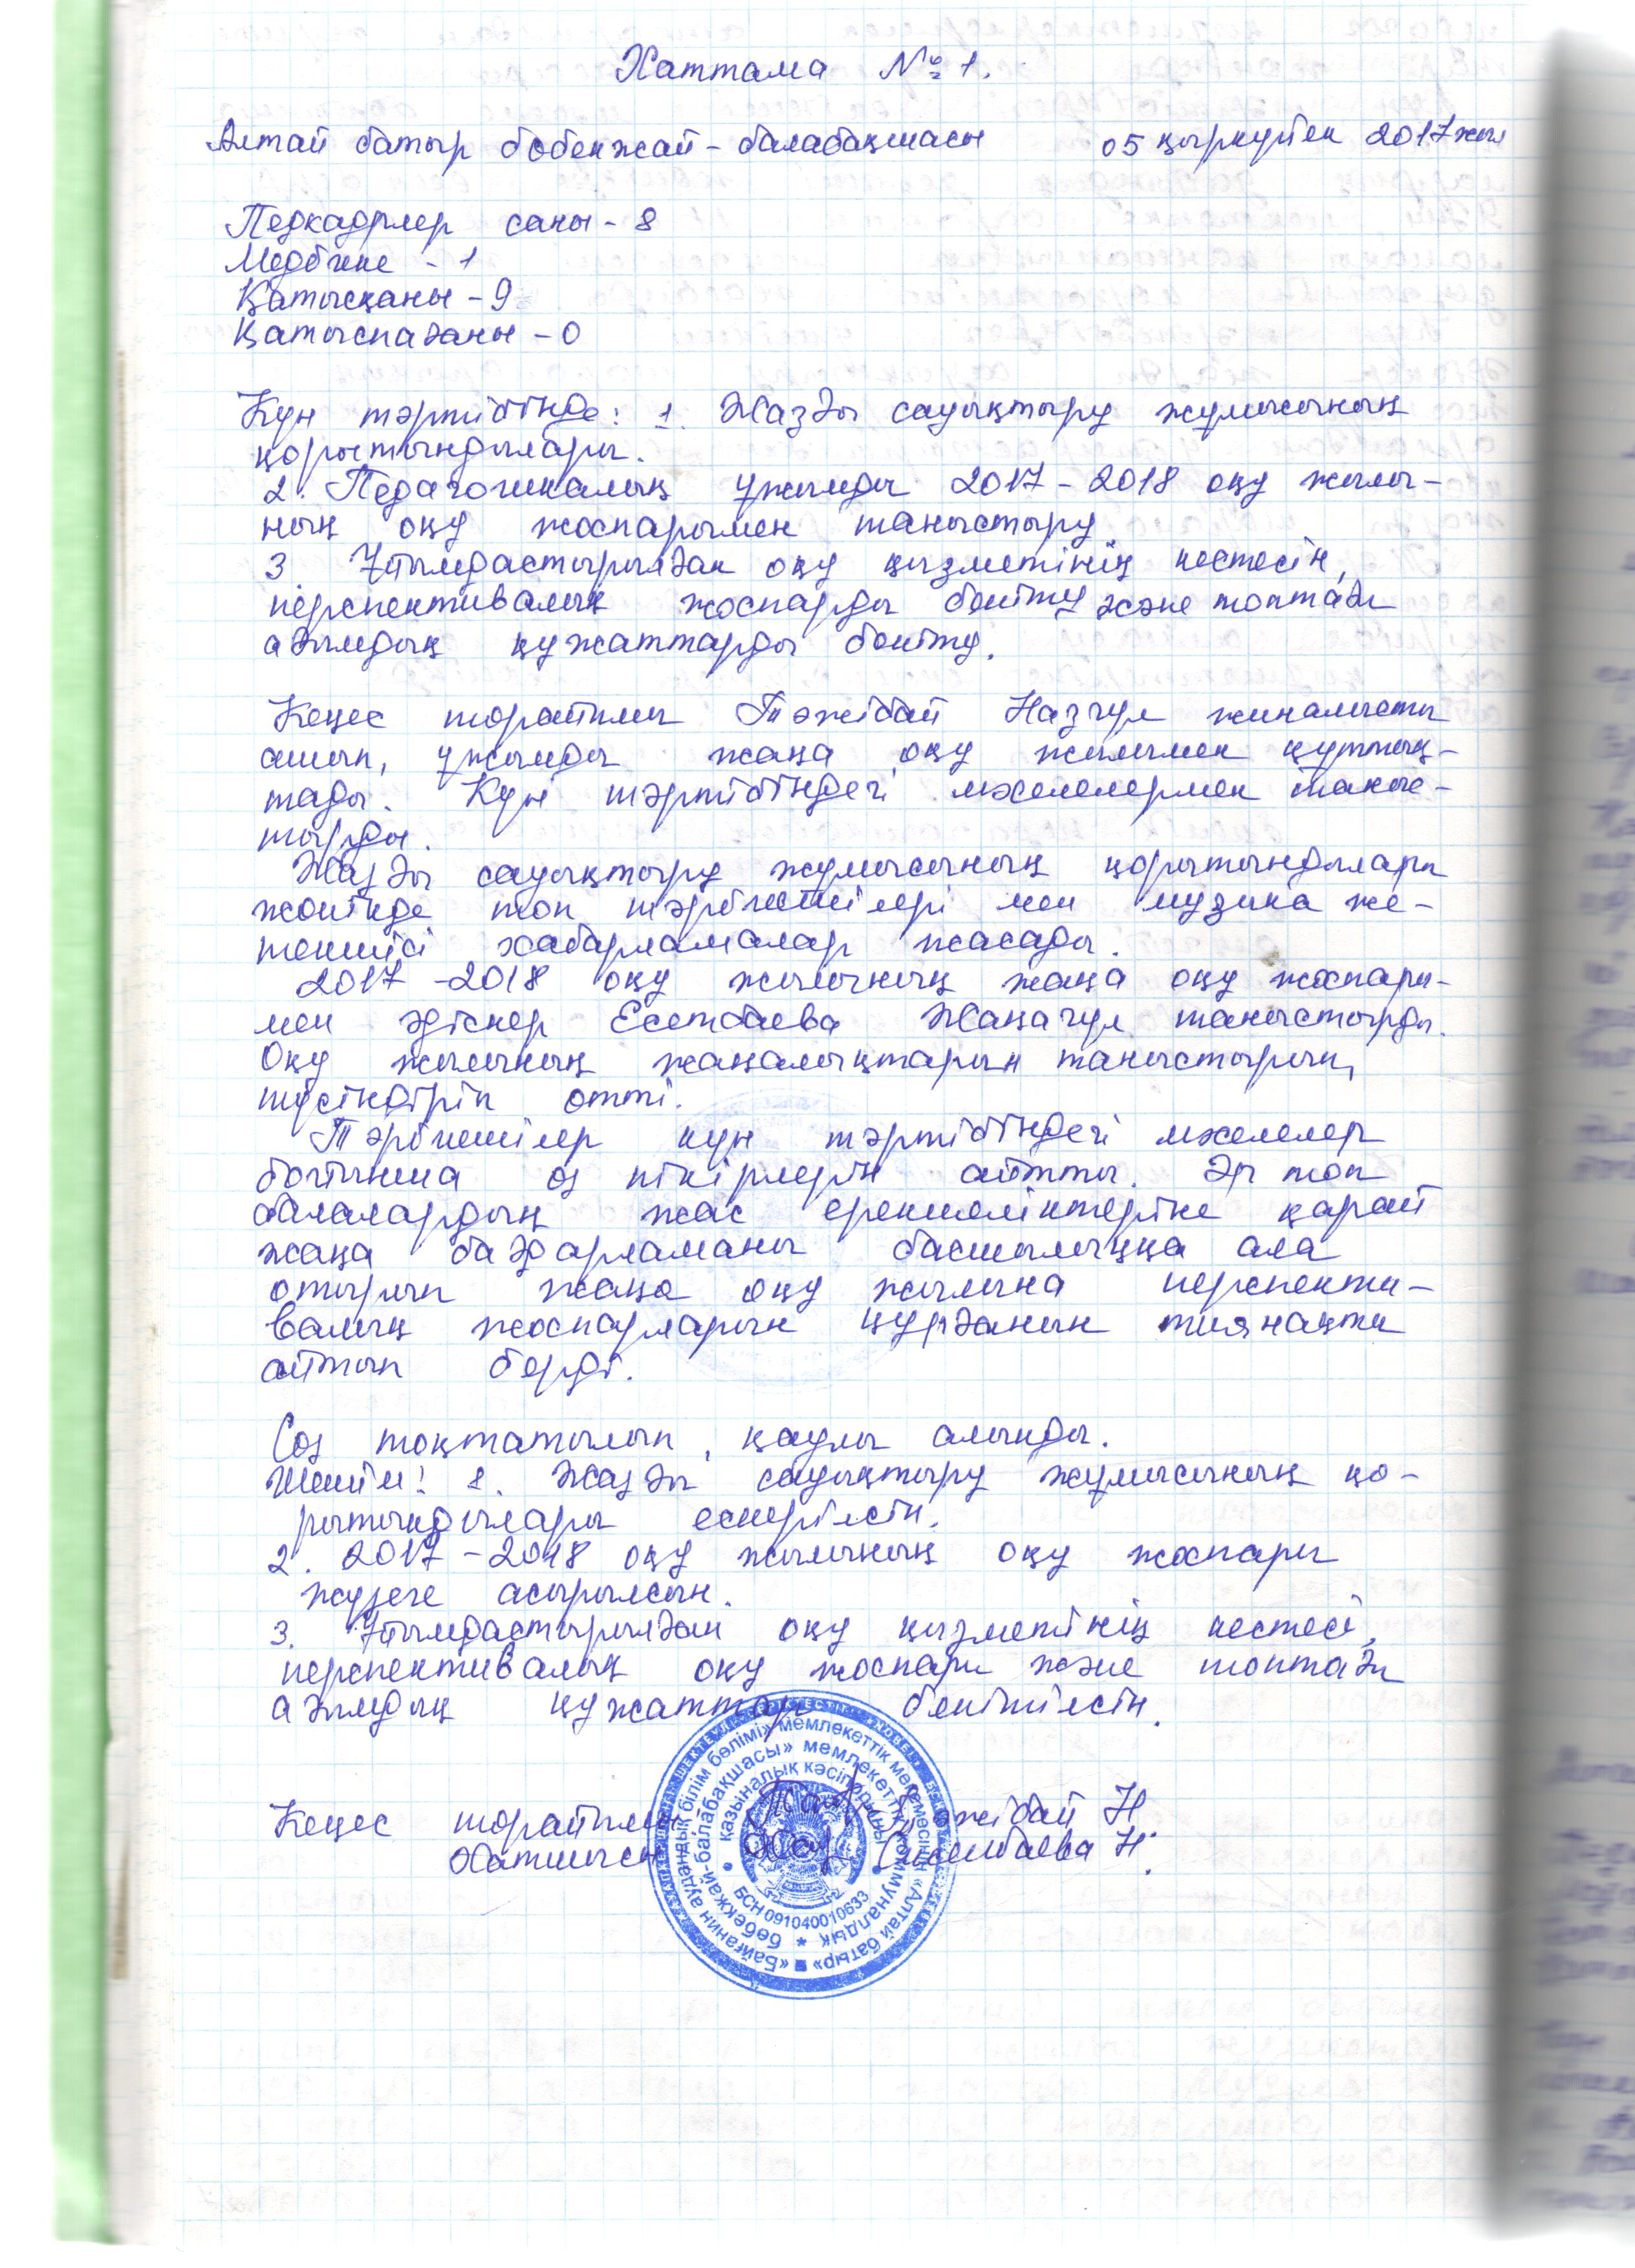 Хаттама № 1.
Алтай батыр бөбекжай-балабақшасы 05 қыркүйек 2017 жыл
Педкадрлер саны - 8
Медбике - 1
Қатысқаны - 9
Қатыспағаны - 0
Күн тәртібінде: 1. Жазғы сауықтыру жұмысының
қорытындылары.
2. Педагогикалық ұжымды 2017 - 2018 оқу жылы-
ның оқу жоспарымен таныстыру
3. Ұйымдастырылған оқу қызметінің кестесін,
перспективалық жоспарды бекіту және топтағы
ағымдық құжаттарды бекіту.
Кеңес төрайымы Тәжібай Назгүл жиналысты
ашып, ұжымды жаңа оқу жылымен құттық-
тады. Күн тәртібіндегі мәселелермен таныс-
тырды.
Жазғы сауықтыру жұмысының қорытындылары
жөнінде топ тәрбиешілері мен музыка же-
текшісі хабарламалар жасады.
2017 - 2018 оқу жылының жаңа оқу жоспары-
мен әдіскер Есетбаева Жаңагүл таныстырды.
Оқу жылының жаңалықтарын таныстырып,
түсіндіріп өтті.
Тәрбиешілер күн тәртібіндегі мәселелер
бойынша өз пікірлерін айтты. Әр топ
балалардың жас ерекшеліктеріне қарай
жаңа бағдарламаны басшылыққа ала
отырып жаңа оқу жылына перспекти-
валық жоспарларын құрғанын тиянақты
айтып берді.
Сөз тоқтатылып, қаулы алынды.
Шешім: 1. Жазғы сауықтыру жұмысының қо-
рытындылары ескерілсін.
2. 2017 - 2018 оқу жылының оқу жоспары
жүзеге асырылсын.
3. Ұйымдастырылған оқу қызметінің кестесі,
перспективалық оқу жоспары және топтағы
ағымдық құжаттар бекітілсін.
Кеңес төрайымы Тәжібай Н
Хатшысы Н.
«Байғанин аудандық білім бөлімі» мемлекеттік мекемесінің «Алтай батыр»
бөбекжай-балабақшасы» мемлекеттік коммуналдық
қазыналық кәсіпорыны
БСН 091040010633